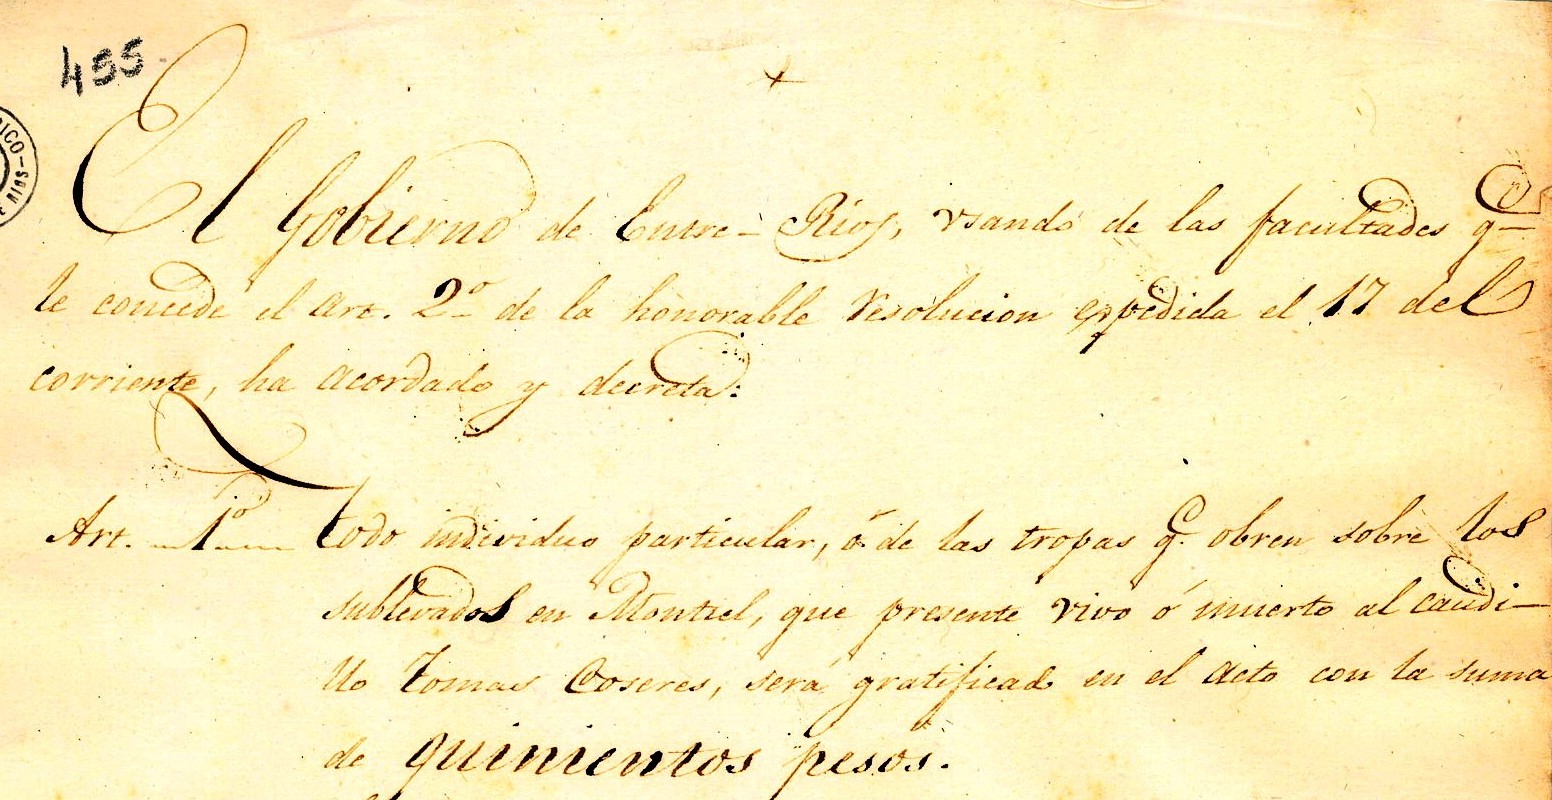 455
El Gobierno de Entre-Rios, usando de las facultades q.e
le concede el Art. 2º de la honorable resolucion eppedida el 17 del
corriente, ha acordado y decreta:
Art. 1º Todo individuo particular, ó de las tropas q.e obren sobre los
sublevados en Montiel, que presente vivo ó muerto al caudi-
llo Tomas Coseres, será gratificado en el acto con la suma
de quinientos pesos.